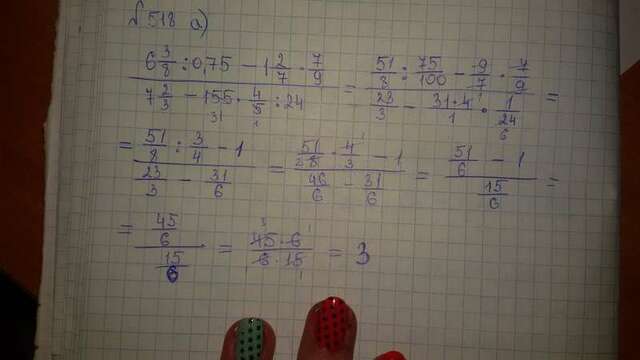 №518 a)
(6 3/8 : 0,75 − 1 2/7 · 7/9) / (7 2/3 − 155 · 4/5 : 24) = (51/8 : 75/100 − 9/7 · 7/9) / (23/3 − 31·4/1 · 1/24) =
31 1 6
= (51/8 : 3/4 − 1) / (23/3 − 31/6) = (51/8 · 4/3 − 1) / (46/6 − 31/6) = (51/6 − 1) / (15/6) =
= (45/6) / (15/6) = 45·6 / 6·15 = 3